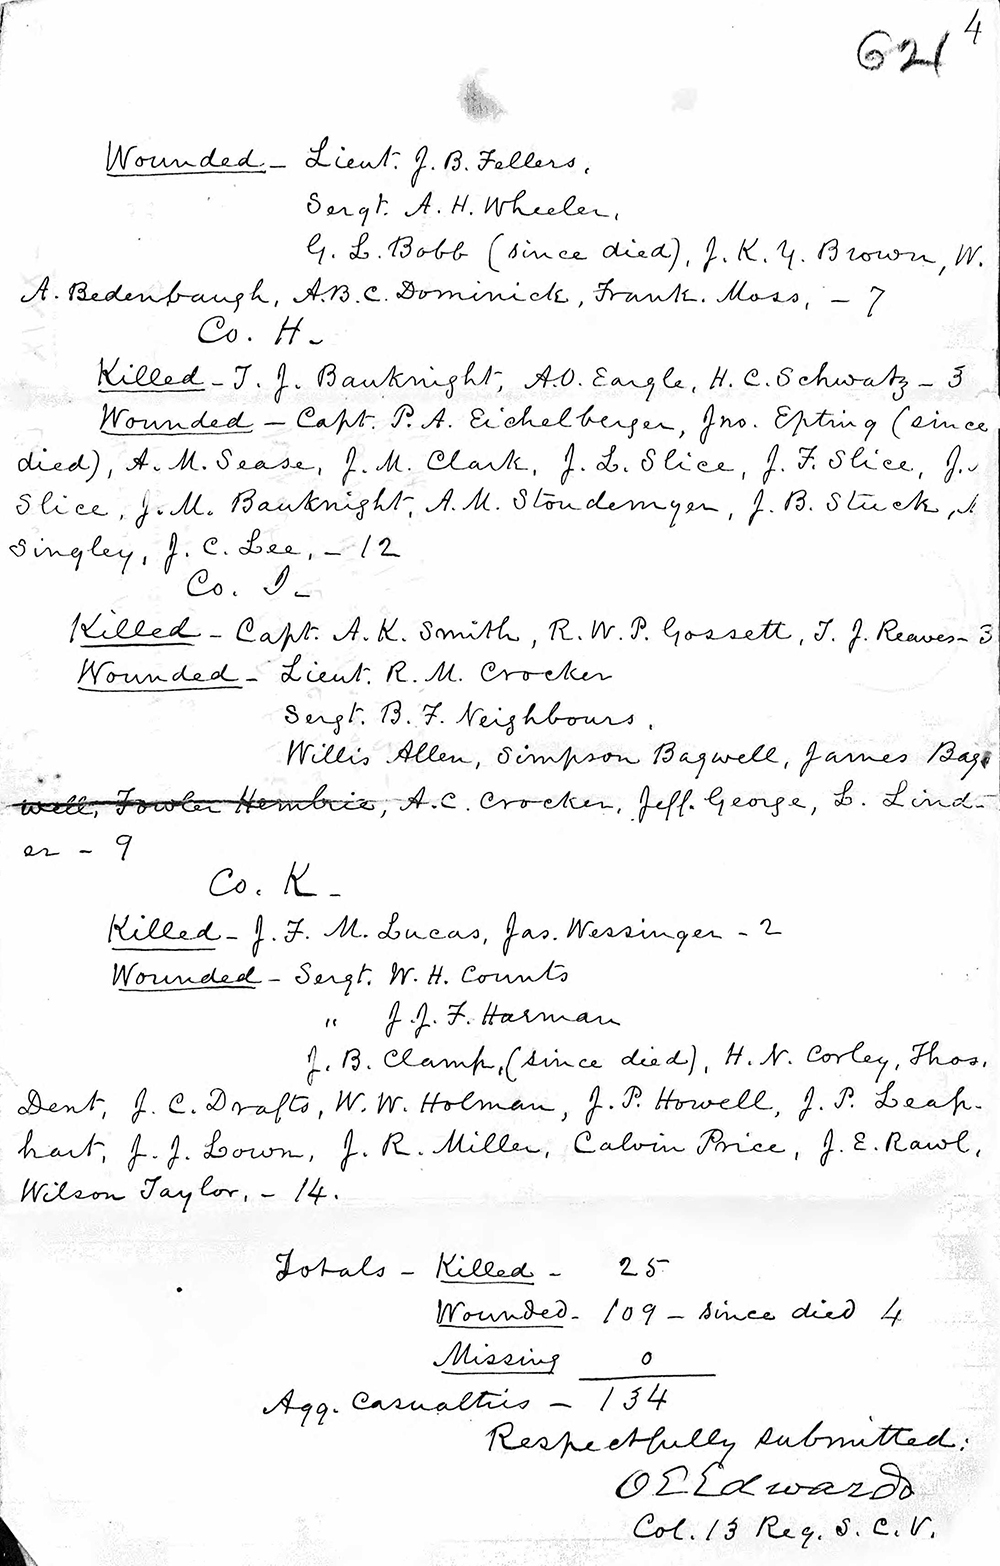 4
621
Wounded - Lieut. J. B. Fellers,
Sergt. A. H. Wheeler,
G. L. Bobb (since died), J. K. Y. Brown, W.
A. Bedenbaugh, A.B.C. Dominick, Frank. Moss, - 7
Co. H -
Killed - T. J. Bauknight, A.O. Eargle, H. C. Schwatz - 3
Wounded - Capt. P. A. Eichelberger, Jno. Epting (since
died), A. M. Sease, J. M. Clark, J. L. Slice, J. F. Slice, J.
Slice, J. M. Bauknight, A. M. Stoudemyer, J. B. Stuck,
Singley, J. C. Lee, - 12
Co. I -
Killed - Capt. A. K. Smith, R. W. P. Gossett, T. J. Reaves - 3
Wounded - Lieut. R. M. Crocker
Sergt. B. F. Neighbours,
Willis Allen, Simpson Bagwell, James Bag-
well, Fowler Hembrie, A. C. Crocker, Jeff. George, L. Lind-
er - 9
Co. K -
Killed - J. F. M. Lucas, Jas. Wessinger - 2
Wounded - Sergt. W. H. Counts
" J. J. F. Harman
J. B. Clamp, (since died), H. N. Corley, Thos.
Dent, J. C. Drafts, W. W. Holman, J. P. Howell, J. P. Leap-
hart, J. J. Lown, J. R. Miller, Calvin Price, J. E. Rawl,
Wilson Taylor, - 14.
Totals - Killed - 25
Wounded - 109 - since died 4
Missing 0
Agg. Casualties - 134
Respectfully submitted:
O E Edwards
Col. 13 Reg. S. C. V.